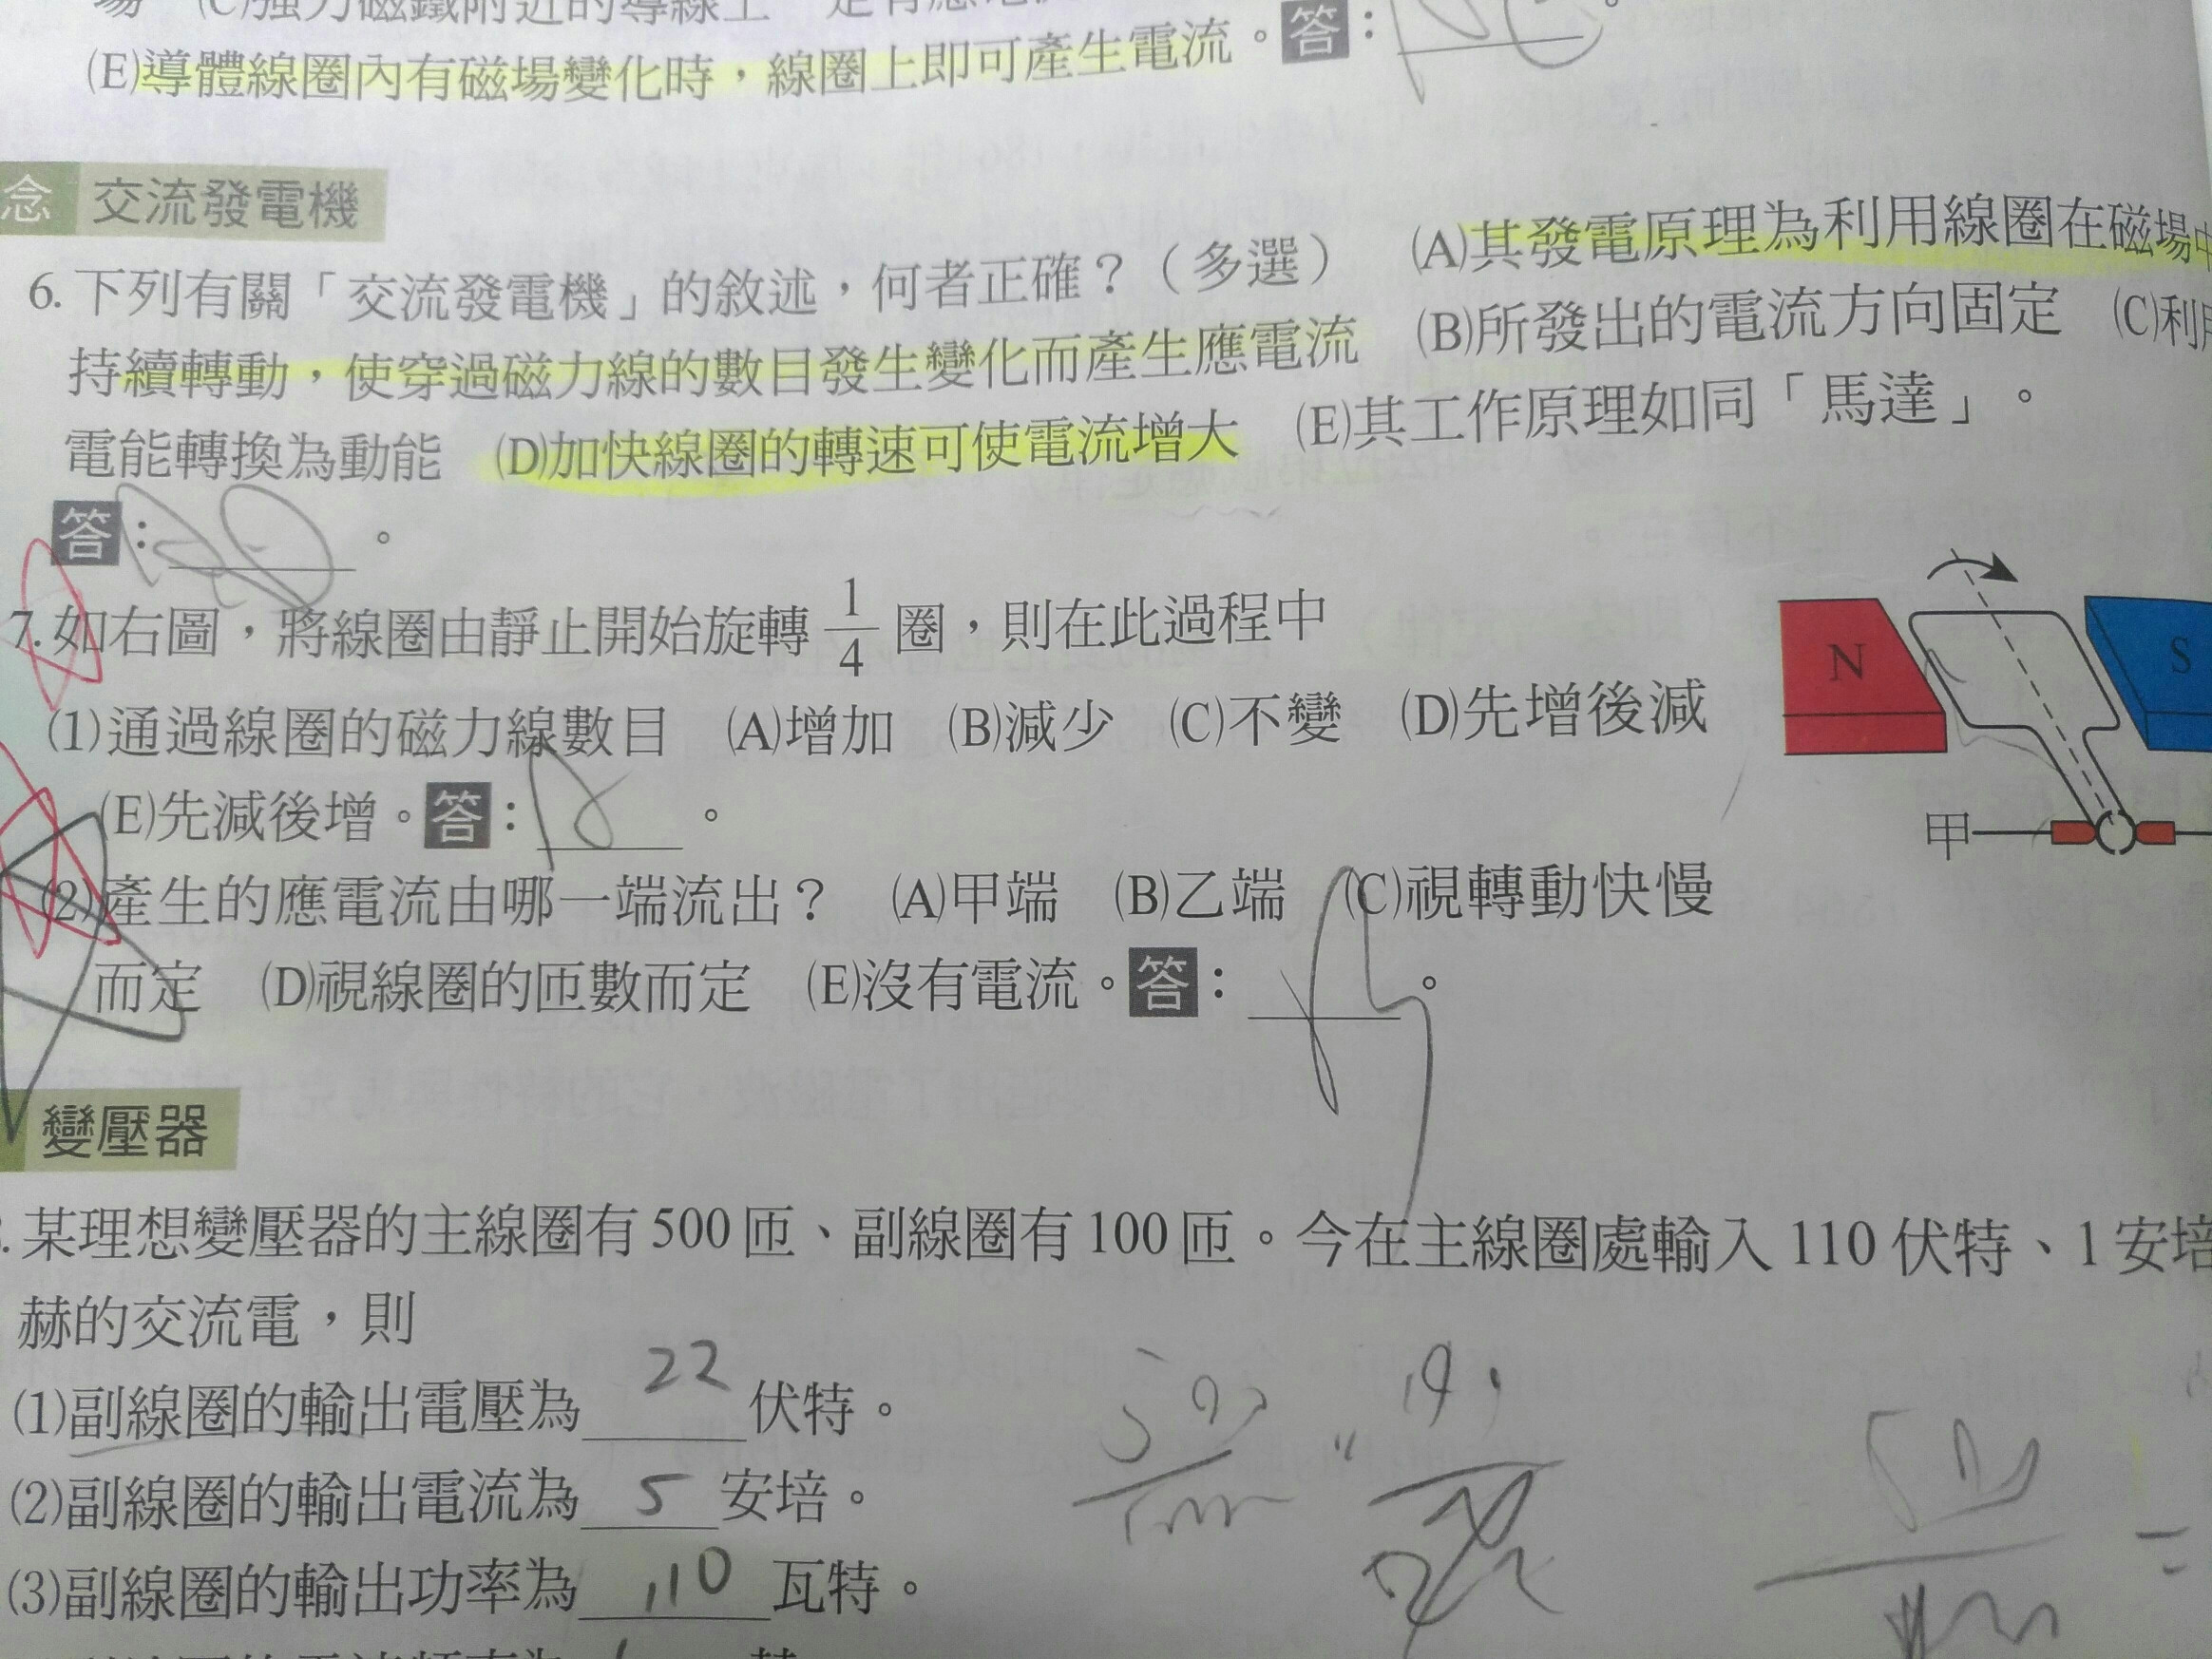 場　(C)強力磁鐵附近的導線上一定有應電流
(E)導體線圈內有磁場變化時，線圈上即可產生電流。答：
念 交流發電機
6. 下列有關「交流發電機」的敘述，何者正確？（多選）　(A)其發電原理為利用線圈在磁場中
持續轉動，使穿過磁力線的數目發生變化而產生應電流　(B)所發出的電流方向固定　(C)利用
電能轉換為動能　(D)加快線圈的轉速可使電流增大　(E)其工作原理如同「馬達」。
答：AD。
7. 如右圖，將線圈由靜止開始旋轉 1/4 圈，則在此過程中
(1)通過線圈的磁力線數目　(A)增加　(B)減少　(C)不變　(D)先增後減
(E)先減後增。答：。
(2)產生的應電流由哪一端流出？　(A)甲端　(B)乙端　(C)視轉動快慢
而定　(D)視線圈的匝數而定　(E)沒有電流。答：。
N
S
甲
變壓器
某理想變壓器的主線圈有 500 匝、副線圈有 100 匝。今在主線圈處輸入 110 伏特、1 安培
赫的交流電，則
(1)副線圈的輸出電壓為 22 伏特。
(2)副線圈的輸出電流為 5 安培。
(3)副線圈的輸出功率為 110 瓦特。